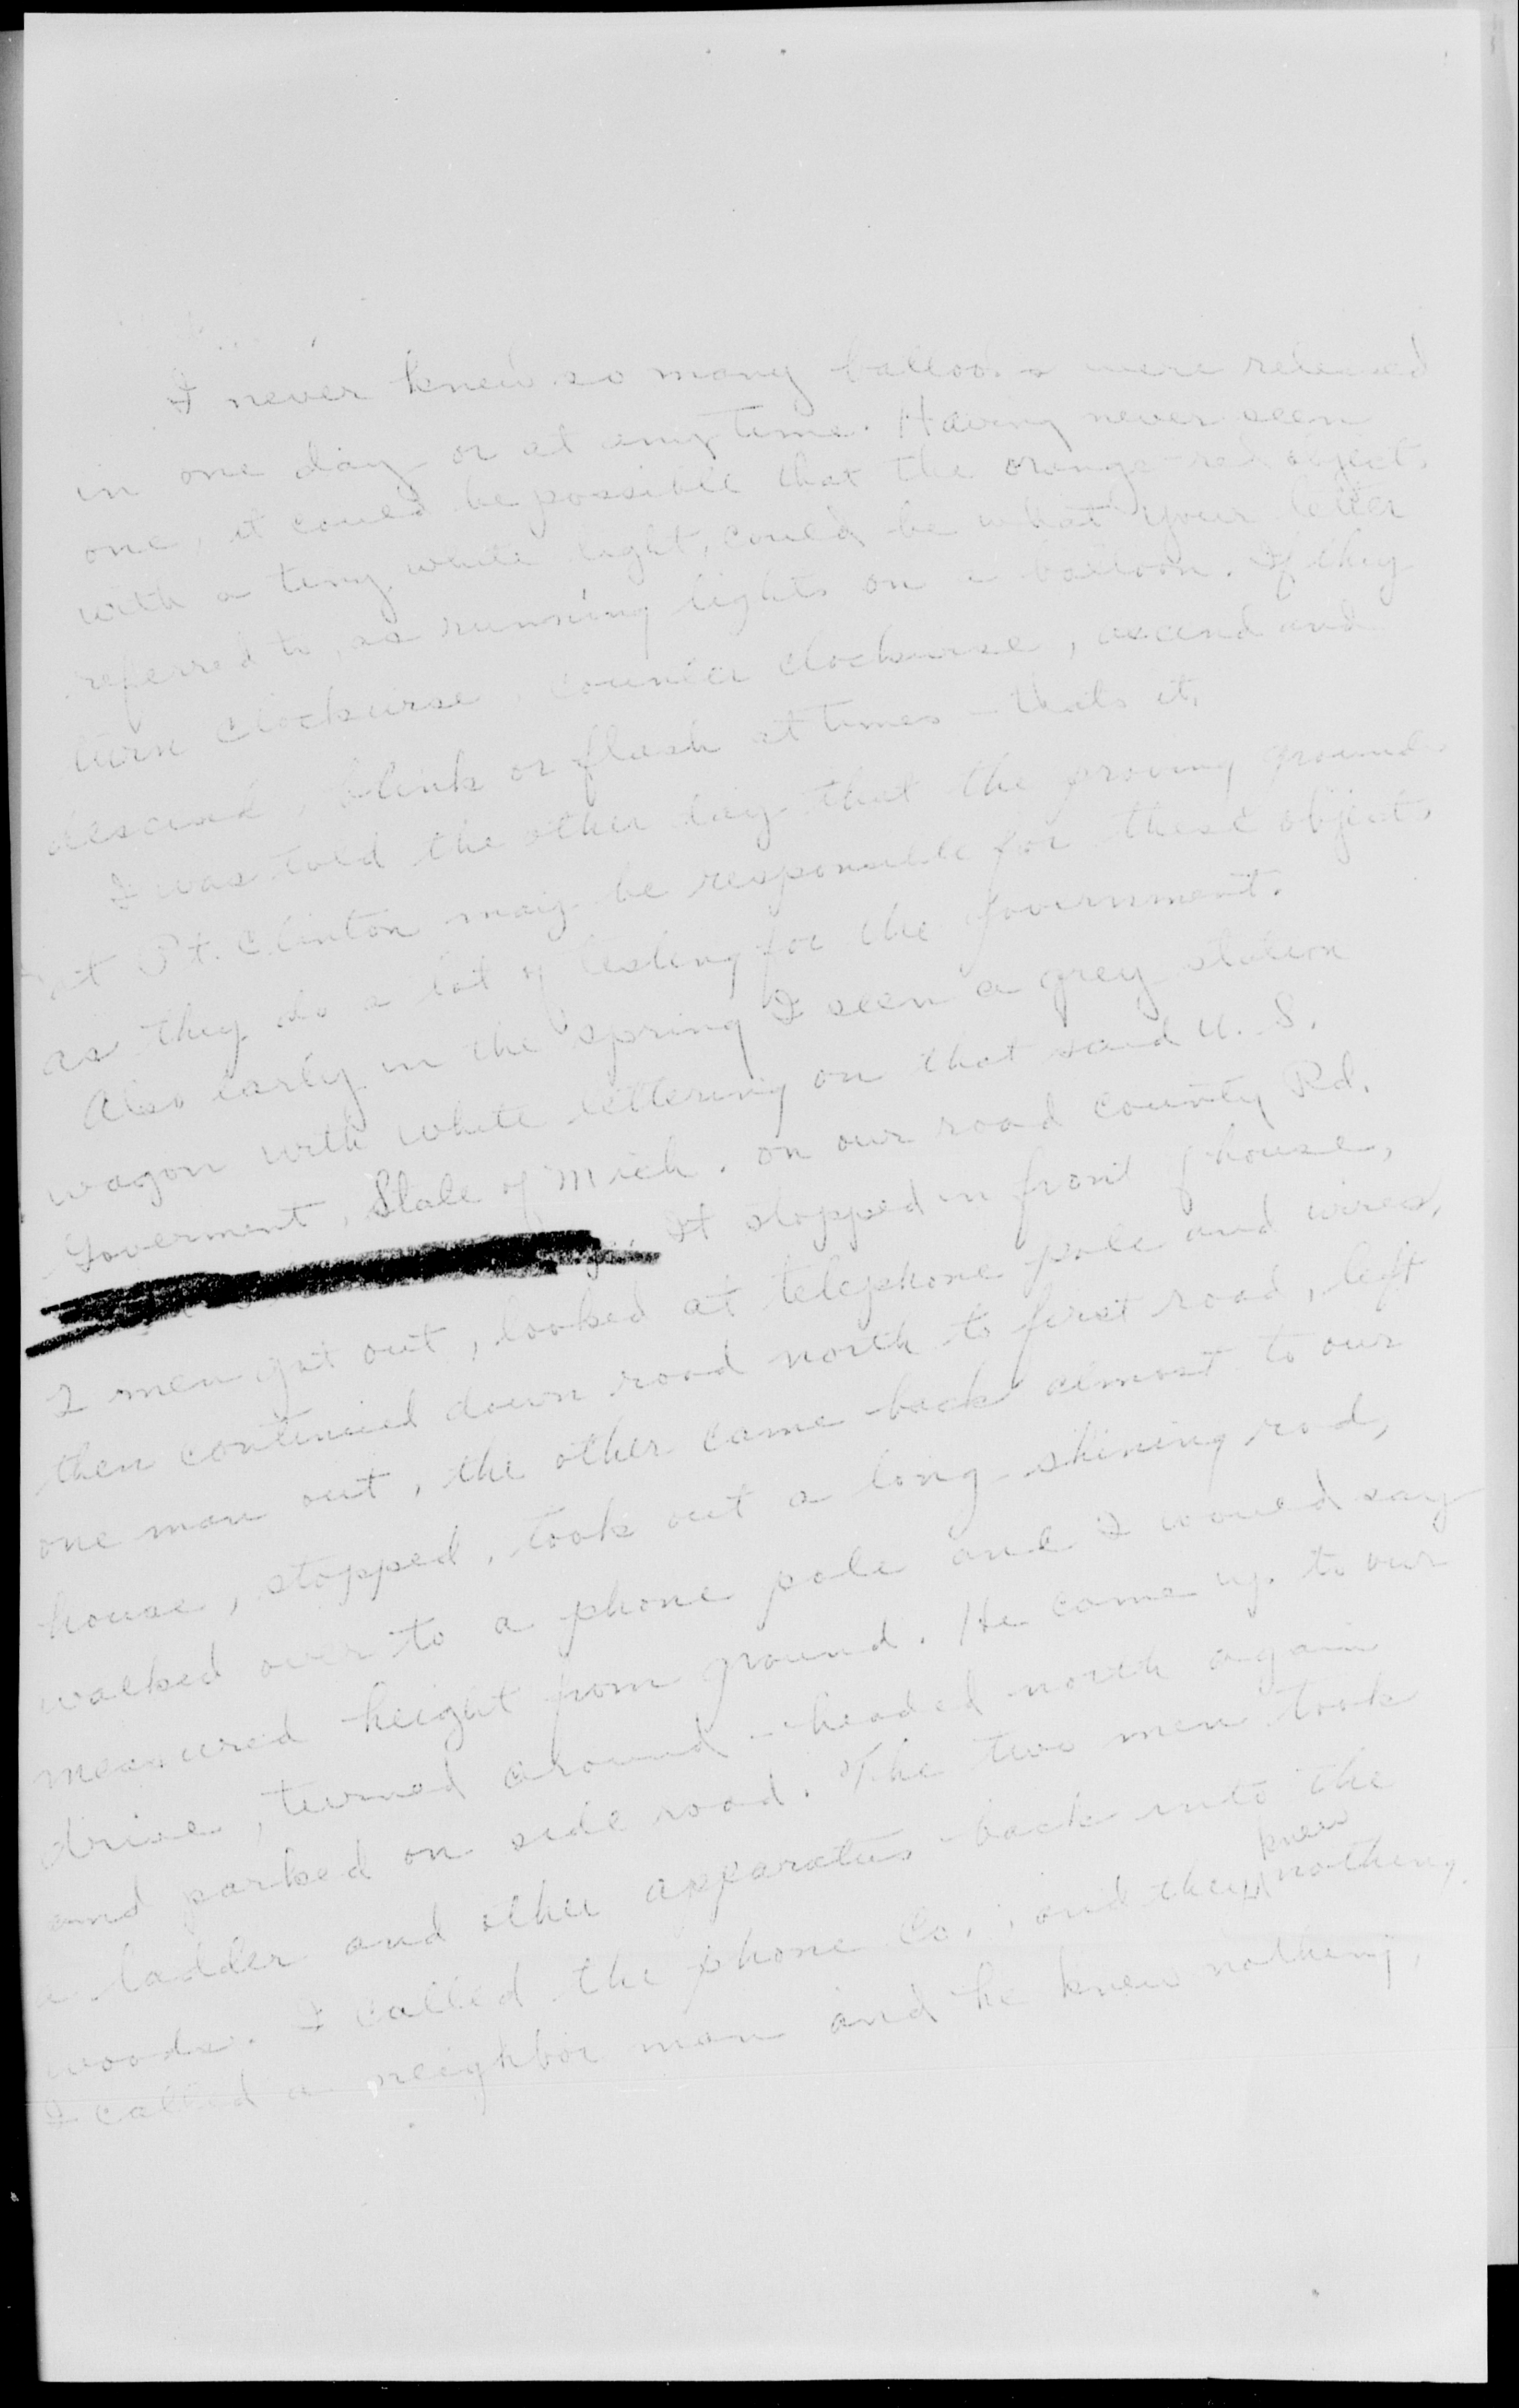 I never knew so many balloons were released
in one day or at any time. Having never seen
one, it could be possible that the orange-red objects
with a tiny white light, could be what your letter
referred to, as running lights on a balloon. If they
turn clockwise, counter clockwise, ascend and
descend, blink or flash at times - thats it.
I was told the other day that the proving grounds
at Pt. Clinton may be responsible for these objects
as they do a lot of testing for the government.
Also early in the spring I seen a grey station
wagon with white lettering on that said U.S.
Goverment, State of Mich. on our road County Rd.
It stopped in front of house,
2 men got out, looked at telephone pole and wires,
then continued down road north to first road, left
one man out, the other came back almost to our
house, stopped, took out a long shining rod,
walked over to a phone pole and I would say
measured height from ground. He came up to our
drive, turned around - headed north again
and parked on side road. The two men took
a ladder and other apparatus back into the
woods. I called the phone Co., and they knew nothing.
I called a neighbor man and he knew nothing,